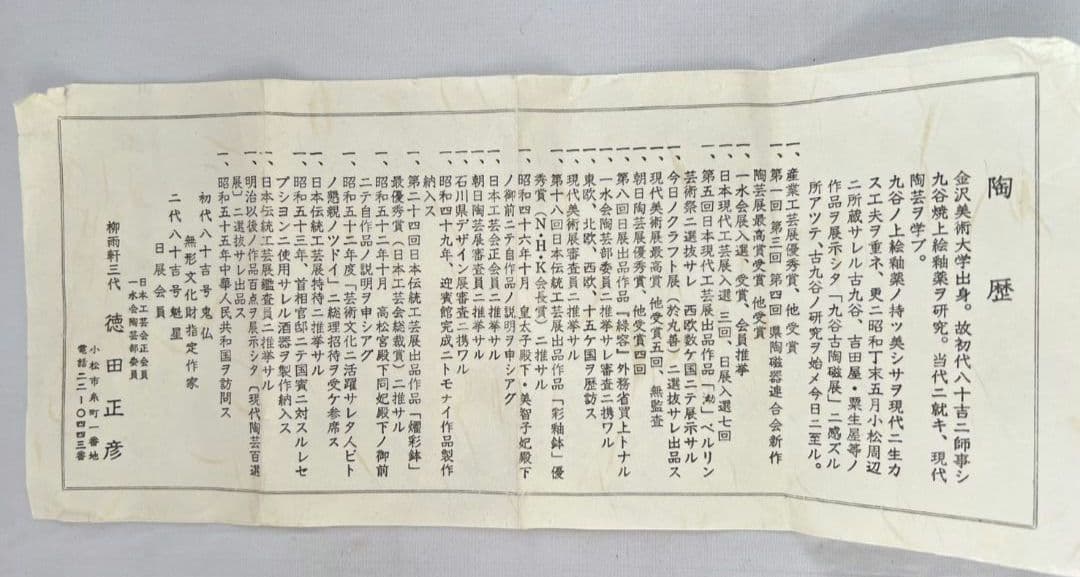 陶歴
金沢美術大学出身。故初代八十吉ニ師事シ
九谷焼上絵釉薬ヲ研究。当代ニ就キ、現代
陶芸ヲ学ブ。
九谷ノ上絵釉薬ノ持ツ美シサヲ現代ニ生カ
ス工夫ヲ重ネ、更ニ昭和丁末五月小松周辺
ニ所蔵サレル古九谷、吉田屋・粟生屋等ノ
作品ヲ展示シタ「九谷古陶磁展」ニ感ズル
所アツテ、古九谷ノ研究ヲ始メ今日ニ至ル。
一、産業工芸展優秀賞、他受賞
一、第一回 第三回 第四回 県陶磁器連合会新作
陶芸展最高賞受賞 他受賞
一、一水会展入選、受賞、会員推挙
一、日本現代工芸展入選三回、日展入選七回
一、第五回日本現代工芸展出品作品「渤」ベルリン
芸術祭ニ選抜サレ 西欧数ケ国ニテ展示サル
一、今日ノクラフト展(於丸善)ニ選抜サレ出品ス
一、現代美術展最高賞 他受賞五回、無監査
一、朝日陶芸展優秀賞、他受賞四回
一、第八回日展出品作品「緑容」外務省買上トナル
一、一水会陶芸部委員ニ推挙サレ審査ニ携ワル
一、東欧、北欧、西欧、十五ケ国ヲ歴訪ス
一、現代美術展審査員ニ推挙サル
一、第十八回日本伝統工芸展出品作品「彩釉鉢」優
秀賞(N・H・K会長賞)ニ推サル
一、昭和四十六年十月 皇太子殿下・美智子妃殿下
ノ御前ニテ自作品ノ説明ヲ申シアグ
一、日本工芸会正会員ニ推挙サル
一、朝日陶芸展審査員ニ推挙サル
一、石川県デザイン展審査ニ携ワル
一、昭和四十九年、迎賓館完成ニトモナイ作品製作
納入ス
一、第二十四回日本伝統工芸展出品作品「燿彩鉢」
最優秀賞(日本工芸会総裁賞)ニ推サル
一、昭和五十二年十月 高松宮殿下同妃殿下ノ御前
ニテ自作品ノ説明ヲ申シアグ
一、昭和五十二年度「芸術文化ニ活躍サレタ人ビト
ノ懇親ノツドイ」ニ総理招待ヲ受ケ参席ス
一、日本伝統工芸展特待ニ推挙サル
一、昭和五十三年、首相官邸ニテ国賓ニ対スルレセ
プシヨンニ使用サレル酒器ヲ製作納入ス
一、日本伝統工芸展鑑査員ニ推挙サル
一、明治以後ノ作品百点ヲ展示シタ〔現代陶芸百選
展〕ニ選抜サレ出品ス
一、昭和五十五年中華人民共和国ヲ訪問ス
初代八十吉号鬼仏
無形文化財指定作家
二代八十吉号魁星
日展会員
日本工芸会正会員
一水会陶芸部委員
柳雨軒三代 徳田正彦
小松市糸町一番地
電話二二-〇四四三番